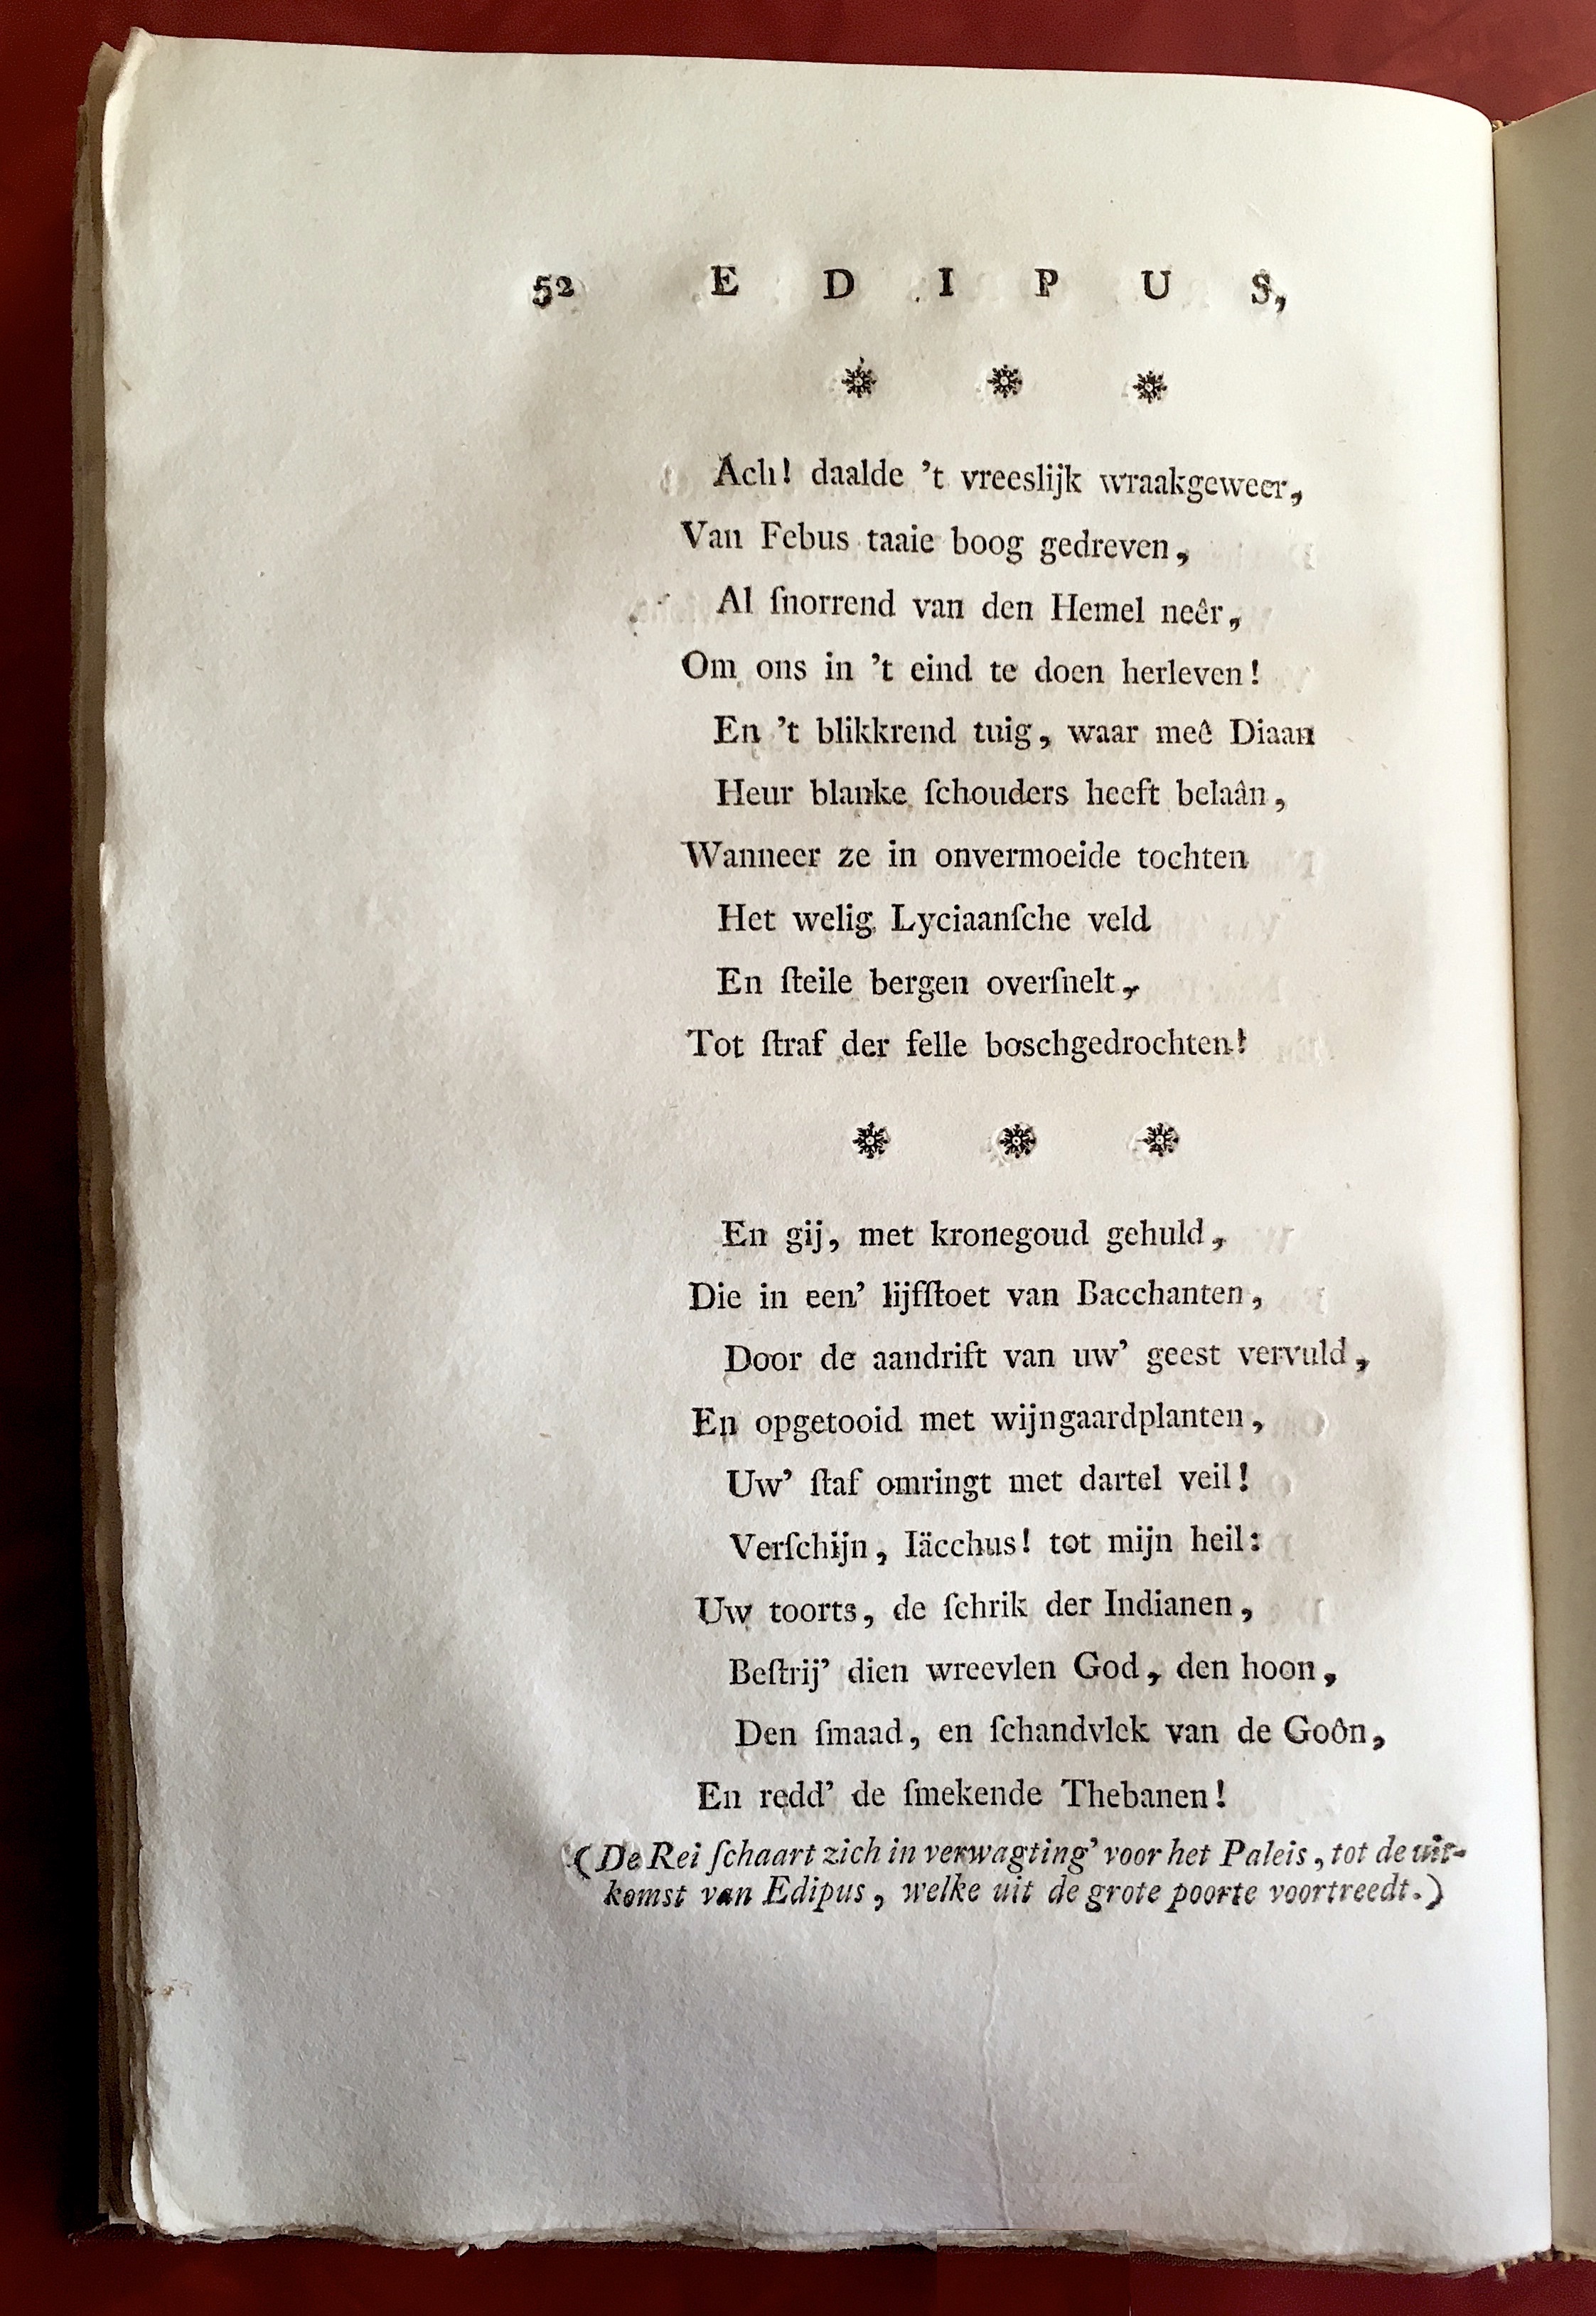 52 E D I P U S,
Ach! daalde 't vreeslijk wraakgeweer,
Van Febus taaie boog gedreven,
Al ſnorrend van den Hemel neêr,
Om ons in 't eind te doen herleven!
En 't blikkrend tuig, waar meê Diaan
Heur blanke ſchouders heeft belaân,
Wanneer ze in onvermoeide tochten
Het welig Lyciaanſche veld
En ſteile bergen overſnelt,
Tot ſtraf der felle boschgedrochten!
En gij, met kronegoud gehuld,
Die in een' lijfſtoet van Bacchanten,
Door de aandrift van uw' geest vervuld,
En opgetooid met wijngaardplanten,
Uw' ſtaf omringt met dartel veil!
Verſchijn, Iäcchus! tot mijn heil:
Uw toorts, de ſchrik der Indianen,
Beſtrij' dien wreevlen God, den hoon,
Den ſmaad, en ſchandvlek van de Goôn,
En redd' de ſmekende Thebanen!
(De Rei ſchaart zich in verwagting' voor het Paleis, tot de uit-
komst van Edipus, welke uit de grote poorte voortreedt.)